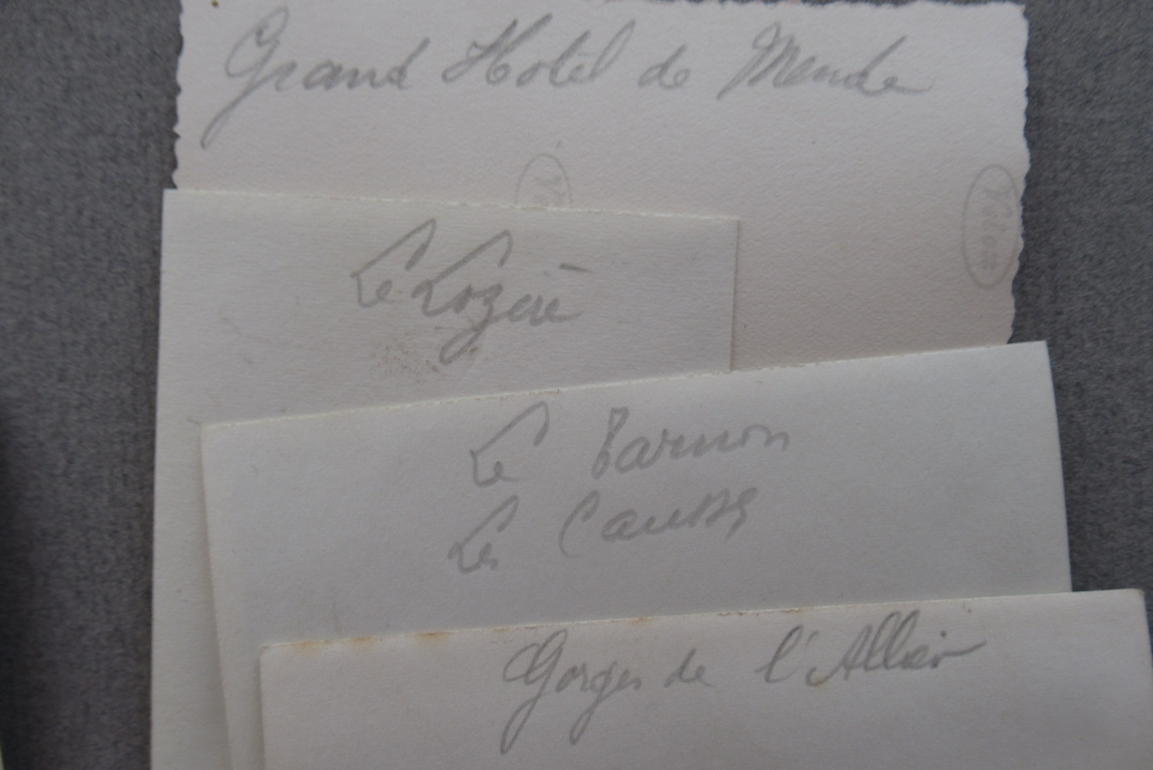 Grand Hotel de Mende
Le Lozère
Le Tarnon
Les Causses
Gorges de l'Allier